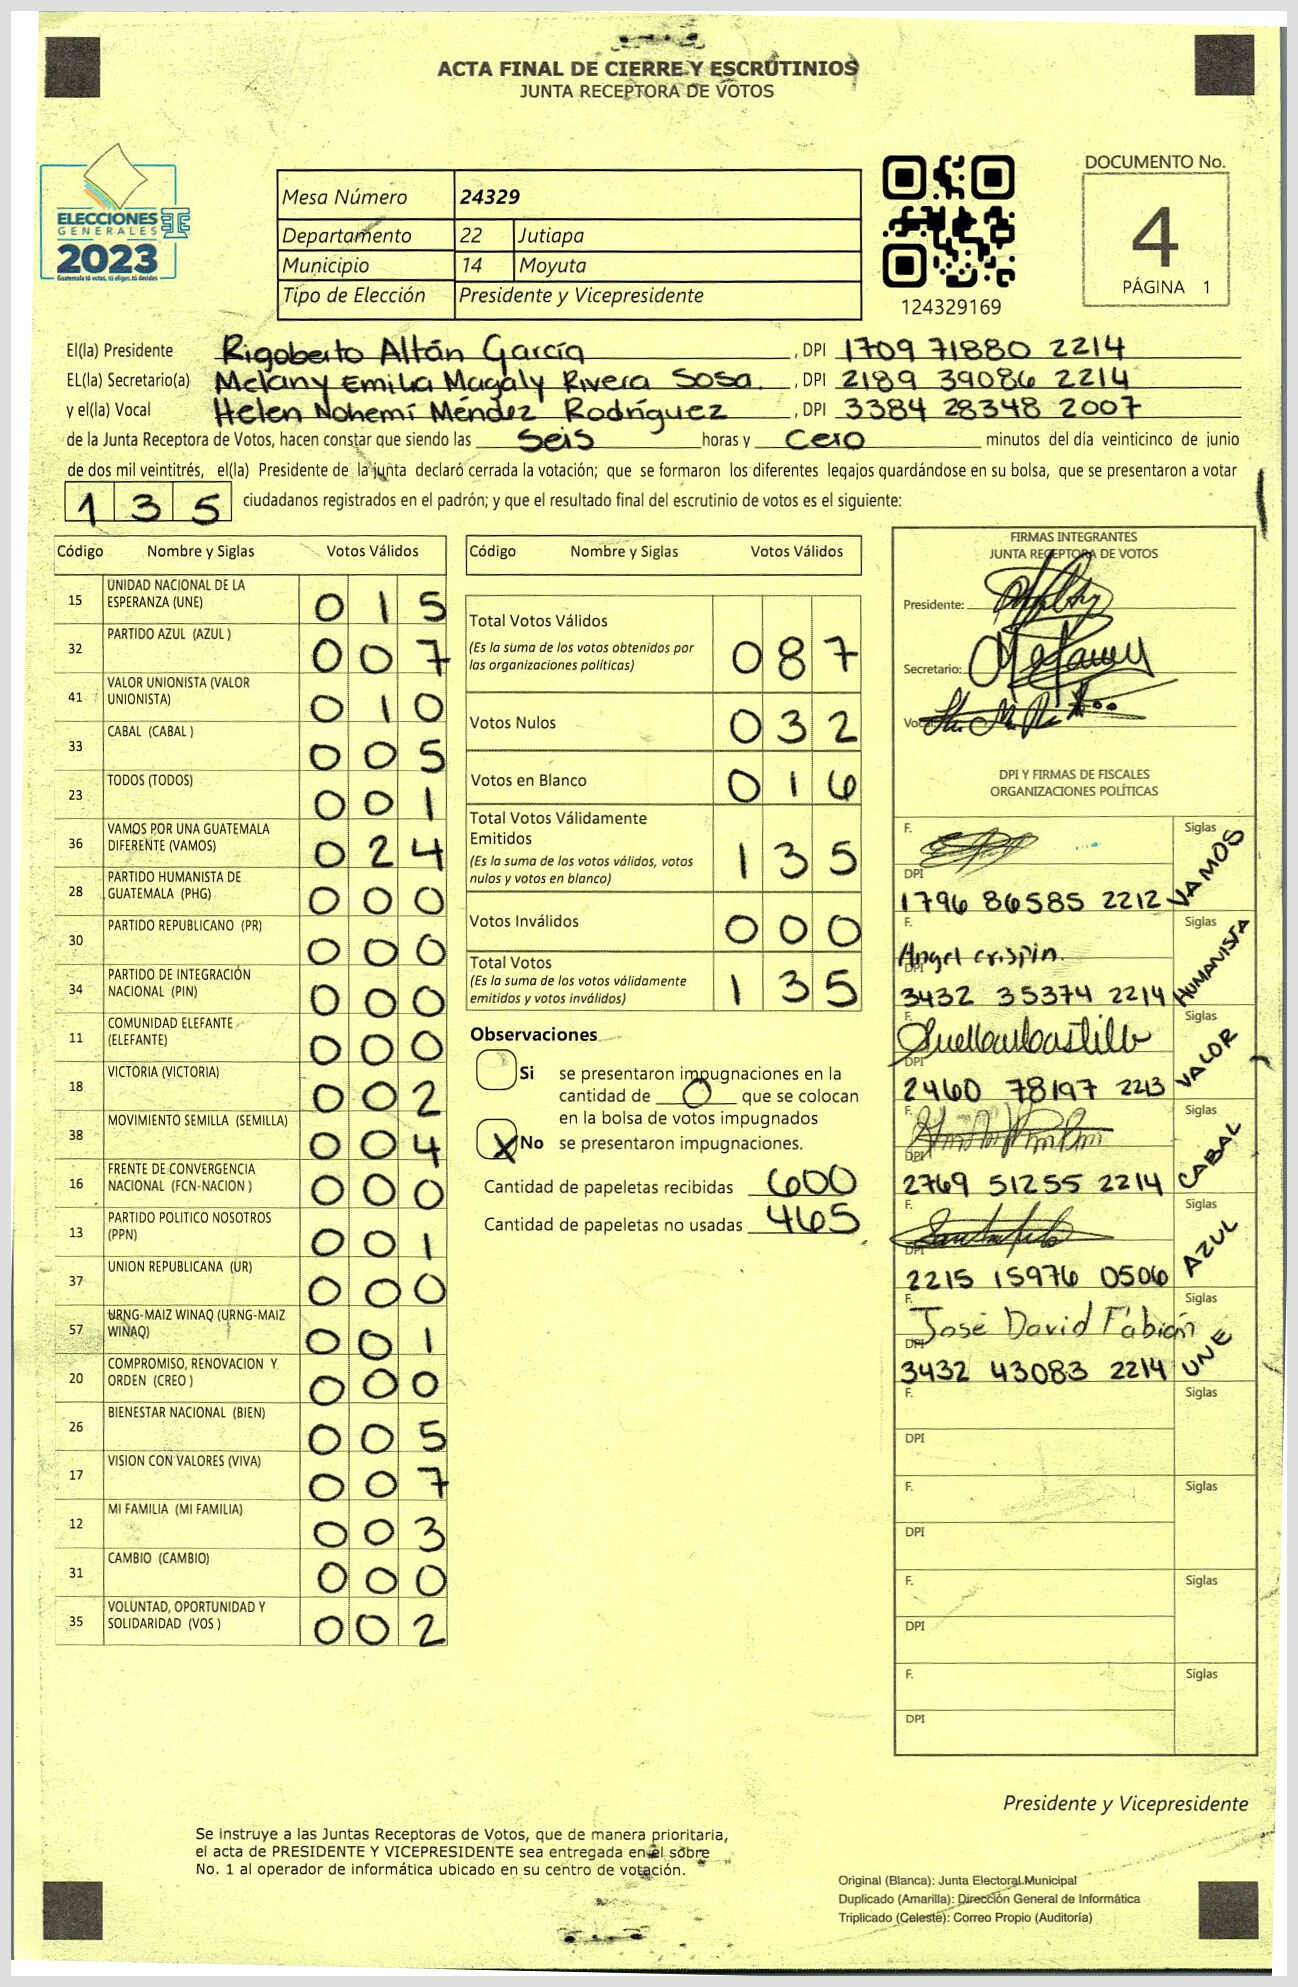 ACTA FINAL DE CIERRE Y ESCRUTINIOS
JUNTA RECEPTORA DE VOTOS
ELECCIONES
GENERALES
2023
Guatemala tú votas, tú eliges, tú decides
Mesa Número 24329
Departamento 22 Jutiapa
Municipio 14 Moyuta
Tipo de Elección Presidente y Vicepresidente
124329169
DOCUMENTO No.
4
PÁGINA 1
El(la) Presidente Rigoberto Altán García, DPI 1709 71880 2214
EL(la) Secretario(a) Melany Emilia Magaly Rivera Sosa., DPI 2189 39086 2214
y el(la) Vocal Helen Nohemí Méndez Rodríguez, DPI 3384 28348 2007
de la Junta Receptora de Votos, hacen constar que siendo las Seis horas y Cero minutos del día veinticinco de junio
de dos mil veintitrés, el(la) Presidente de la junta declaró cerrada la votación; que se formaron los diferentes legajos guardándose en su bolsa, que se presentaron a votar
1 3 5 ciudadanos registrados en el padrón; y que el resultado final del escrutinio de votos es el siguiente:
Código Nombre y Siglas Votos Válidos
15 UNIDAD NACIONAL DE LA ESPERANZA (UNE) 0 1 5
32 PARTIDO AZUL (AZUL ) 0 0 7
41 VALOR UNIONISTA (VALOR UNIONISTA) 0 1 0
33 CABAL (CABAL ) 0 0 5
23 TODOS (TODOS) 0 0 1
36 VAMOS POR UNA GUATEMALA DIFERENTE (VAMOS) 0 2 4
28 PARTIDO HUMANISTA DE GUATEMALA (PHG) 0 0 0
30 PARTIDO REPUBLICANO (PR) 0 0 0
34 PARTIDO DE INTEGRACIÓN NACIONAL (PIN) 0 0 0
11 COMUNIDAD ELEFANTE (ELEFANTE) 0 0 0
18 VICTORIA (VICTORIA) 0 0 2
38 MOVIMIENTO SEMILLA (SEMILLA) 0 0 4
16 FRENTE DE CONVERGENCIA NACIONAL (FCN-NACION ) 0 0 0
13 PARTIDO POLITICO NOSOTROS (PPN) 0 0 1
37 UNION REPUBLICANA (UR) 0 0 0
57 URNG-MAIZ WINAQ (URNG-MAIZ WINAQ) 0 0 1
20 COMPROMISO, RENOVACION Y ORDEN (CREO ) 0 0 0
26 BIENESTAR NACIONAL (BIEN) 0 0 5
17 VISION CON VALORES (VIVA) 0 0 7
12 MI FAMILIA (MI FAMILIA) 0 0 3
31 CAMBIO (CAMBIO) 0 0 0
35 VOLUNTAD, OPORTUNIDAD Y SOLIDARIDAD (VOS ) 0 0 2
Código Nombre y Siglas Votos Válidos
Total Votos Válidos
(Es la suma de los votos obtenidos por
las organizaciones políticas) 0 8 7
Votos Nulos 0 3 2
Votos en Blanco 0 1 6
Total Votos Válidamente
Emitidos
(Es la suma de los votos válidos, votos
nulos y votos en blanco) 1 3 5
Votos Inválidos 0 0 0
Total Votos
(Es la suma de los votos válidamente
emitidos y votos inválidos) 1 3 5
Observaciones
Si se presentaron impugnaciones en la
cantidad de 0 que se colocan
en la bolsa de votos impugnados
X No se presentaron impugnaciones.
Cantidad de papeletas recibidas 600
Cantidad de papeletas no usadas 465
FIRMAS INTEGRANTES
JUNTA RECEPTORA DE VOTOS
Presidente:
Secretario:
Vocal:
DPI Y FIRMAS DE FISCALES
ORGANIZACIONES POLÍTICAS
F. Siglas VAMOS
DPI 1796 86585 2212
F. Angel Crispin. Siglas HUMANISTA
DPI 3432 35374 2214
F. Siglas VALOR
DPI 2460 78197 2213
F. Siglas CABAL
DPI 2769 51255 2214
F. Siglas AZUL
DPI 2215 15976 0506
F. José David Fabián Siglas UNE
DPI 3432 43083 2214
F. Siglas
DPI
F. Siglas
DPI
F. Siglas
DPI
F. Siglas
DPI
Presidente y Vicepresidente
Se instruye a las Juntas Receptoras de Votos, que de manera prioritaria,
el acta de PRESIDENTE Y VICEPRESIDENTE sea entregada en el sobre
No. 1 al operador de informática ubicado en su centro de votación.
Original (Blanca): Junta Electoral Municipal
Duplicado (Amarilla): Dirección General de Informática
Triplicado (Celeste): Correo Propio (Auditoría)